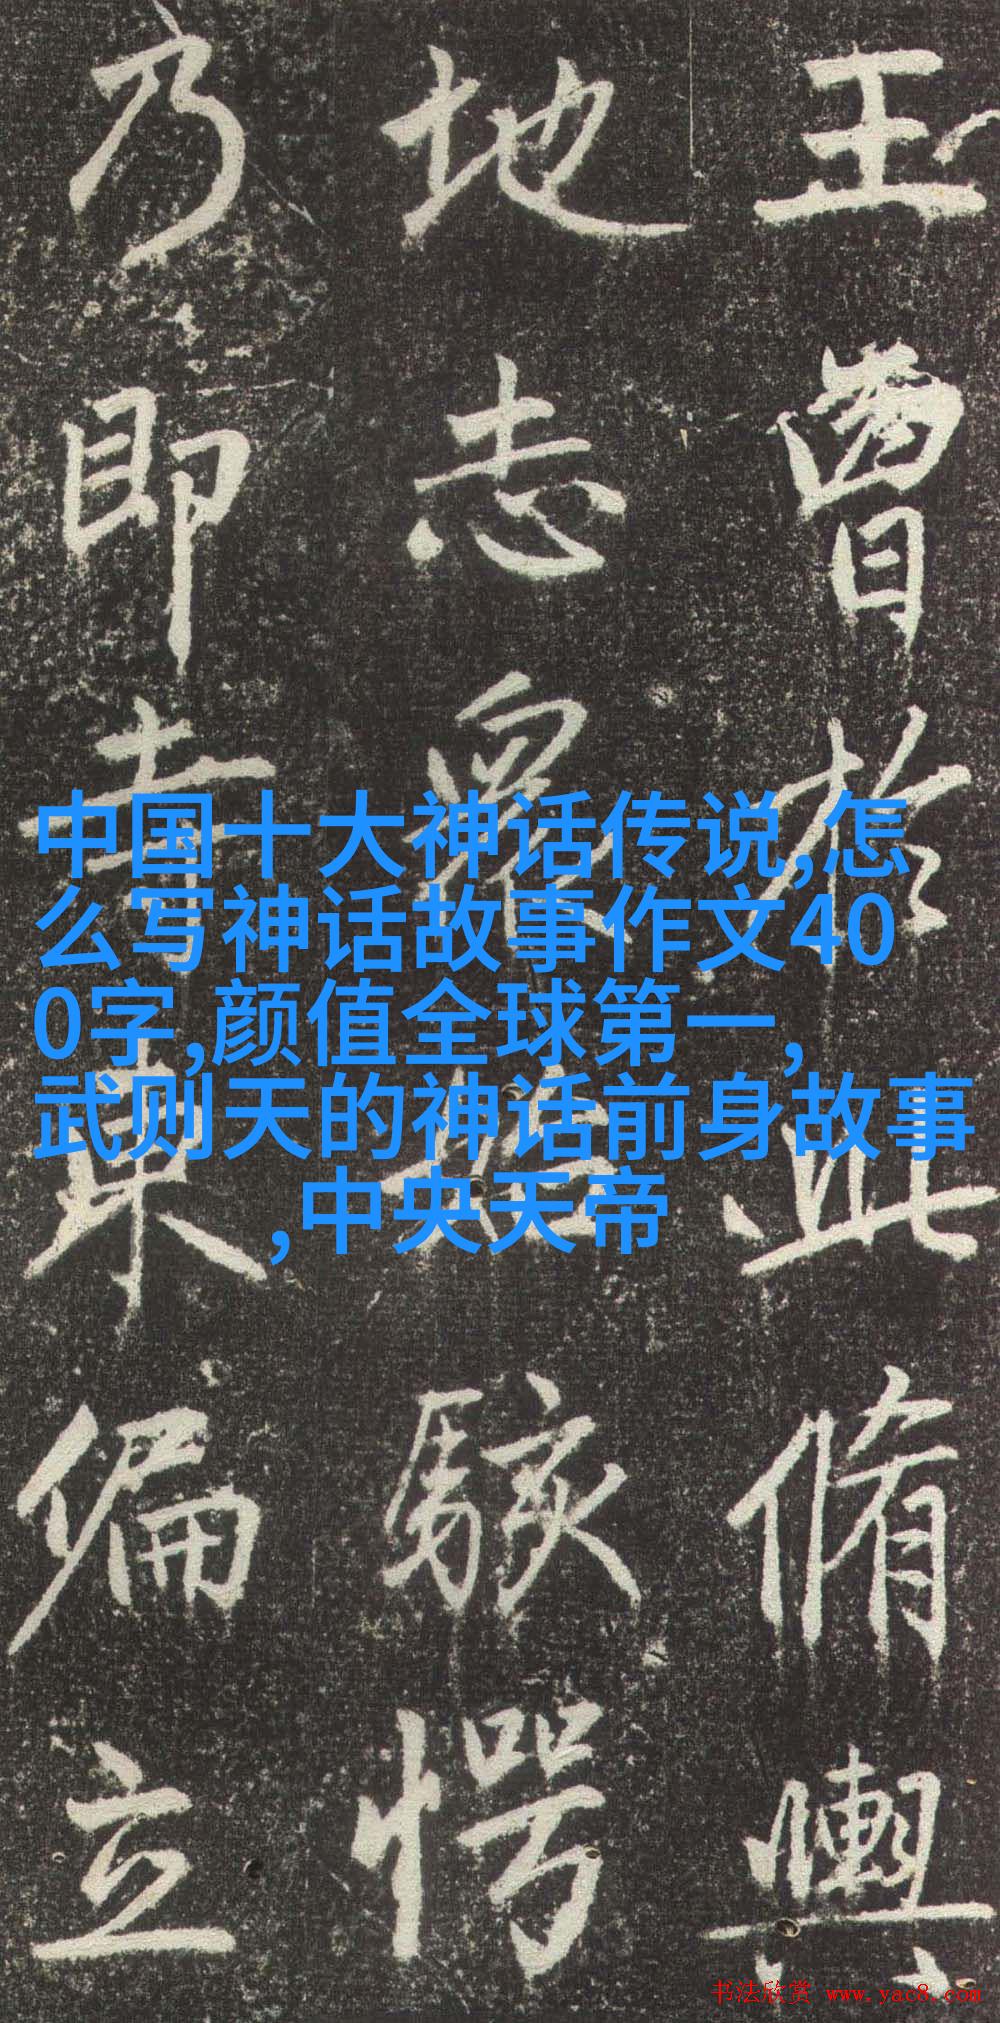 王曾於此脩輿
地志眾始駭愕
乃即寺東偏立
中国十大神话传说,怎
么写神话故事作文40
0字,颜值全球第一,
武则天的神话前身故事
,中央天帝
书法欣赏 www.yac8.com